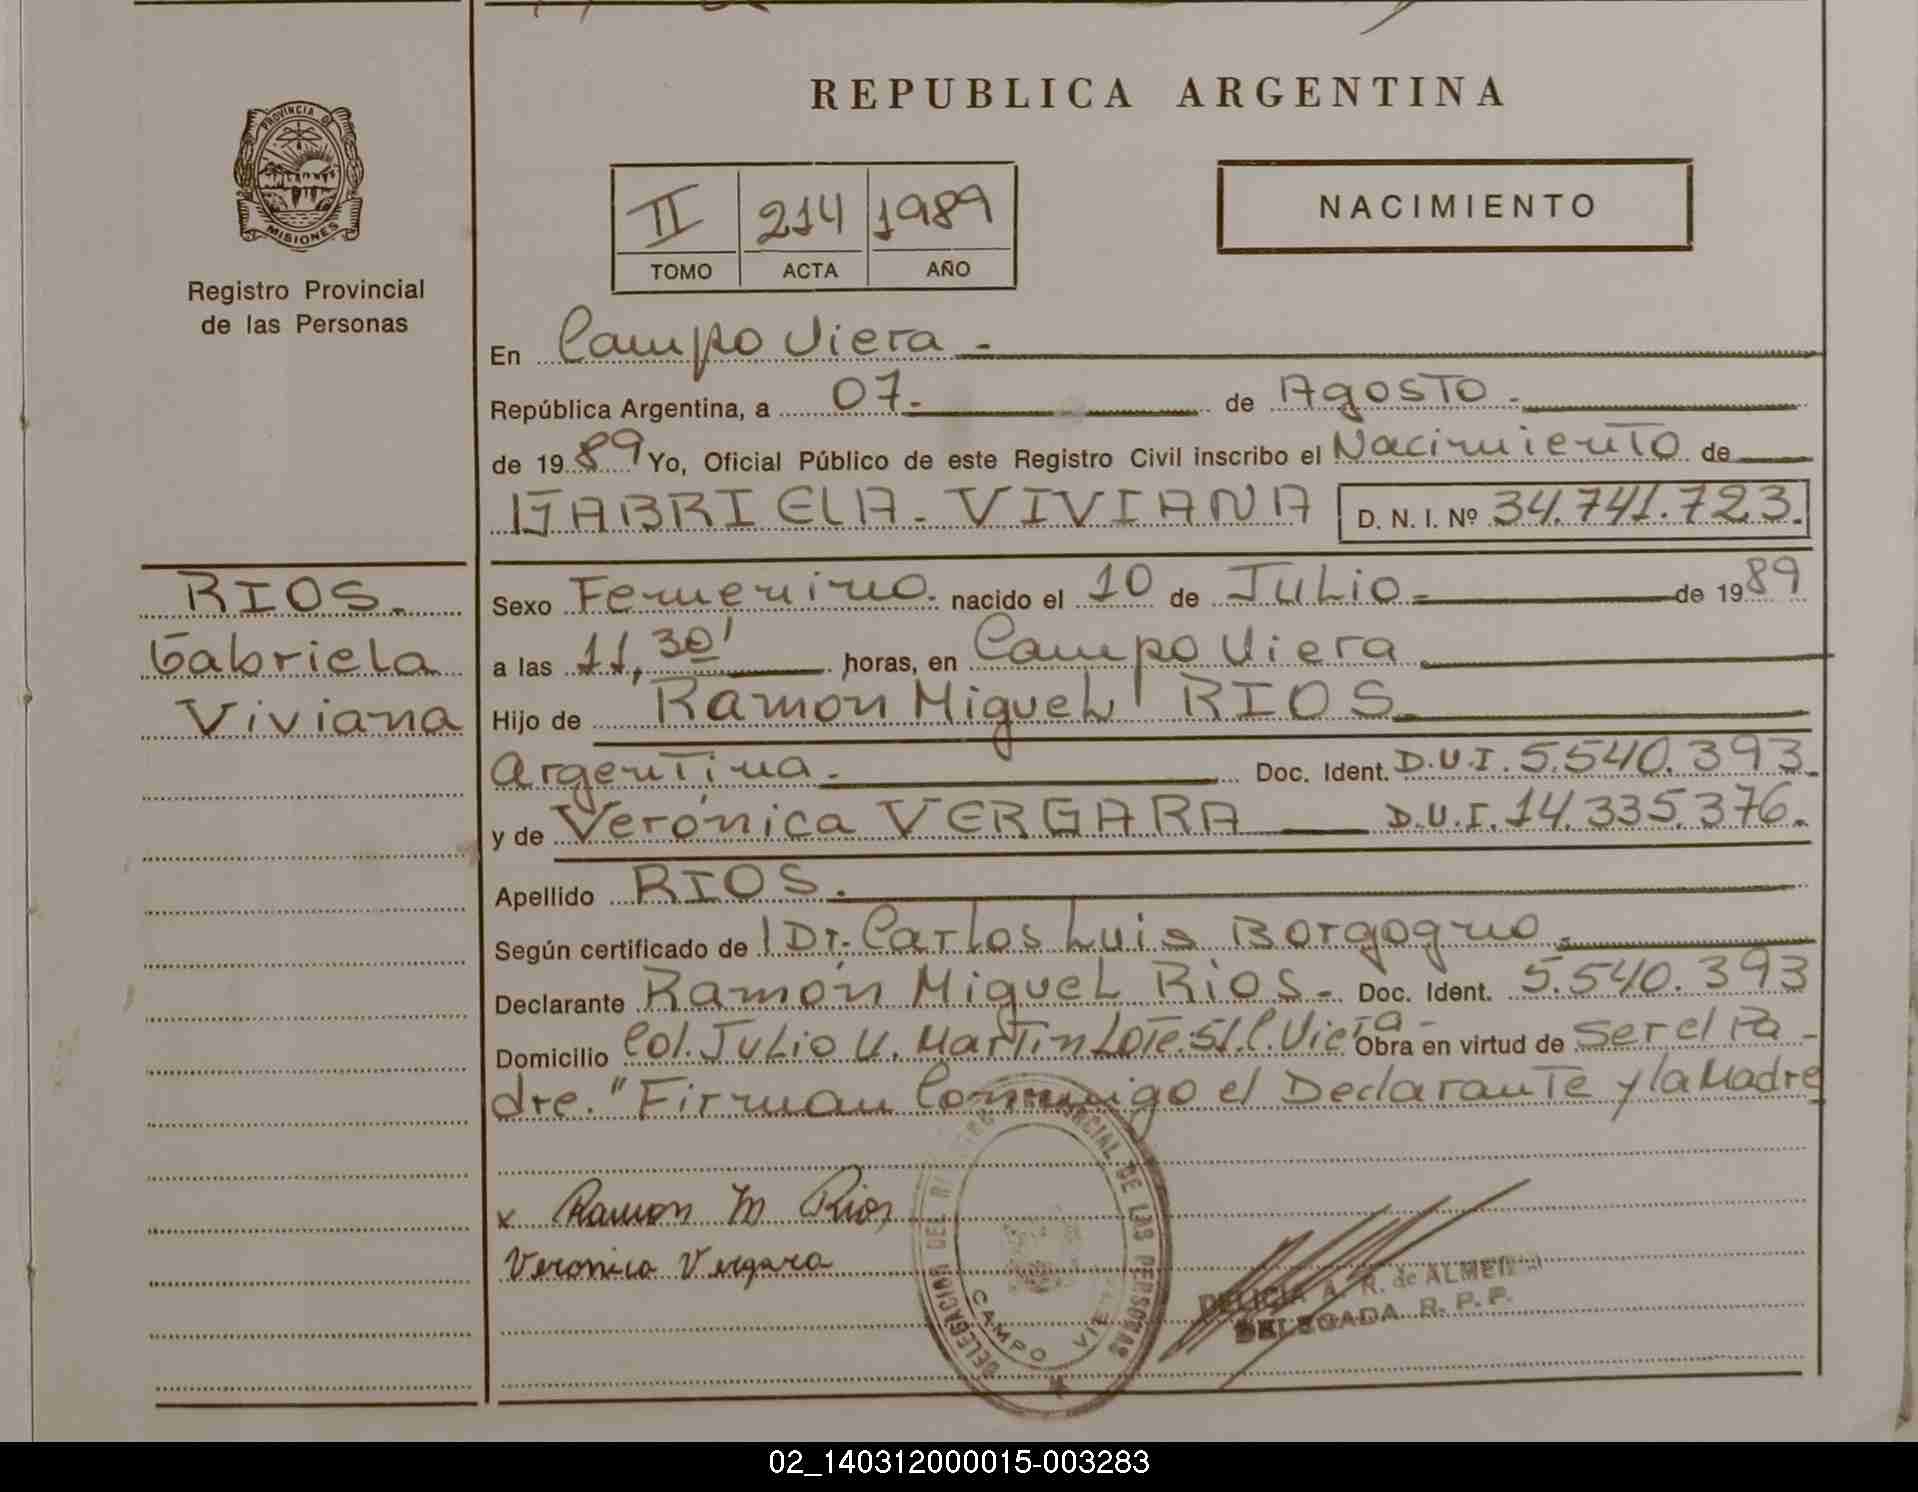 REPUBLICA ARGENTINA
PROVINCIA DE
MISIONES
Registro Provincial
de las Personas
II 214 1989
TOMO ACTA AÑO
NACIMIENTO
En Campo Viera -
República Argentina, a 07. de Agosto.
de 1989 Yo, Oficial Público de este Registro Civil inscribo el Nacimiento de
GABRIELA. VIVIANA D. N. I. Nº 34.741.723.
RIOS.
Gabriela
Viviana
Sexo Femenino. nacido el 10 de JULIO. de 1989
a las 11,30' horas, en Campo Viera
Hijo de Ramón Miguel RIOS.
Argentina. Doc. Ident. D.U.I. 5.540.393.
y de Verónica VERGARA D.U.I. 14.335.376.
Apellido RIOS.
Según certificado de Dr. Carlos Luis Borgogno.
Declarante Ramón Miguel Rios. Doc. Ident. 5.540.393
Domicilio Col. Julio U. Martin Lote.51.C.Viera- Obra en virtud de Ser el Pa-
dre. "Firman Conmigo el Declarante y la Madre
x Ramon M Rios
Veronica Vergara
DELEGACION DEL REGISTRO PROVINCIAL DE LAS PERSONAS
CAMPO VIERA
DELICIA A. R. de ALMEIDA
DELEGADA R. P. P.
02_140312000015-003283